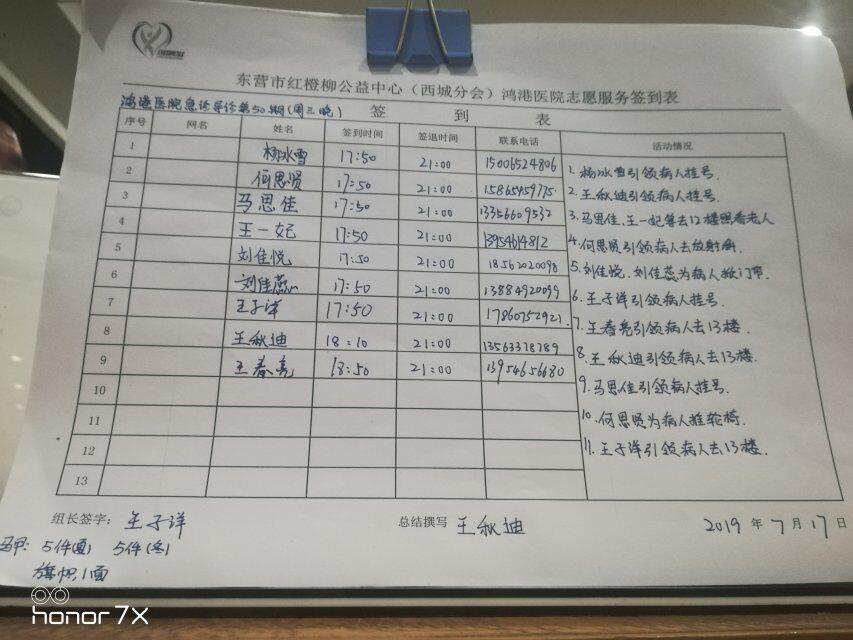 东营市红橙柳公益中心（西城分会）鸿港医院志愿服务签到表
鸿港医院急诊导诊第50期(周三晚) 签 到 表
序号 网名 姓名 签到时间 签退时间 联系电话 活动情况
1 杨冰雪 17:50 21:00 15006524806
2 何思贤 17:50 21:00 15865459775
3 马思佳 17:50 21:00 13356609532
4 王一妃 17:50 21:00 13954614812
5 刘佳悦 17:50 21:00 18562020098
6 刘佳蕊 17:50 21:00 13884920099
7 王子洋 17:50 21:00 17860752921
8 王秋迪 18:10 21:00 13563378789
9 王春亮 18:50 21:00 13954656680
10
11
12
13
1. 杨冰雪引领病人挂号.
2. 王秋迪引领病人挂号.
3. 马思佳、王一妃等去12楼照看老人
4. 何思贤引领病人去放射科.
5. 刘佳悦、刘佳蕊为病人掀门帘.
6. 王子洋引领病人挂号.
7. 王春亮引领病人去13楼.
8. 王秋迪引领病人去13楼.
9. 马思佳引领病人挂号.
10. 何思贤为病人推轮椅.
11. 王子洋引领病人去13楼.
组长签字：王子洋 总结撰写 王秋迪 2019 年 7 月 17 日
马甲: 5件(夏) 5件(冬)
旗帜1面
honor 7X